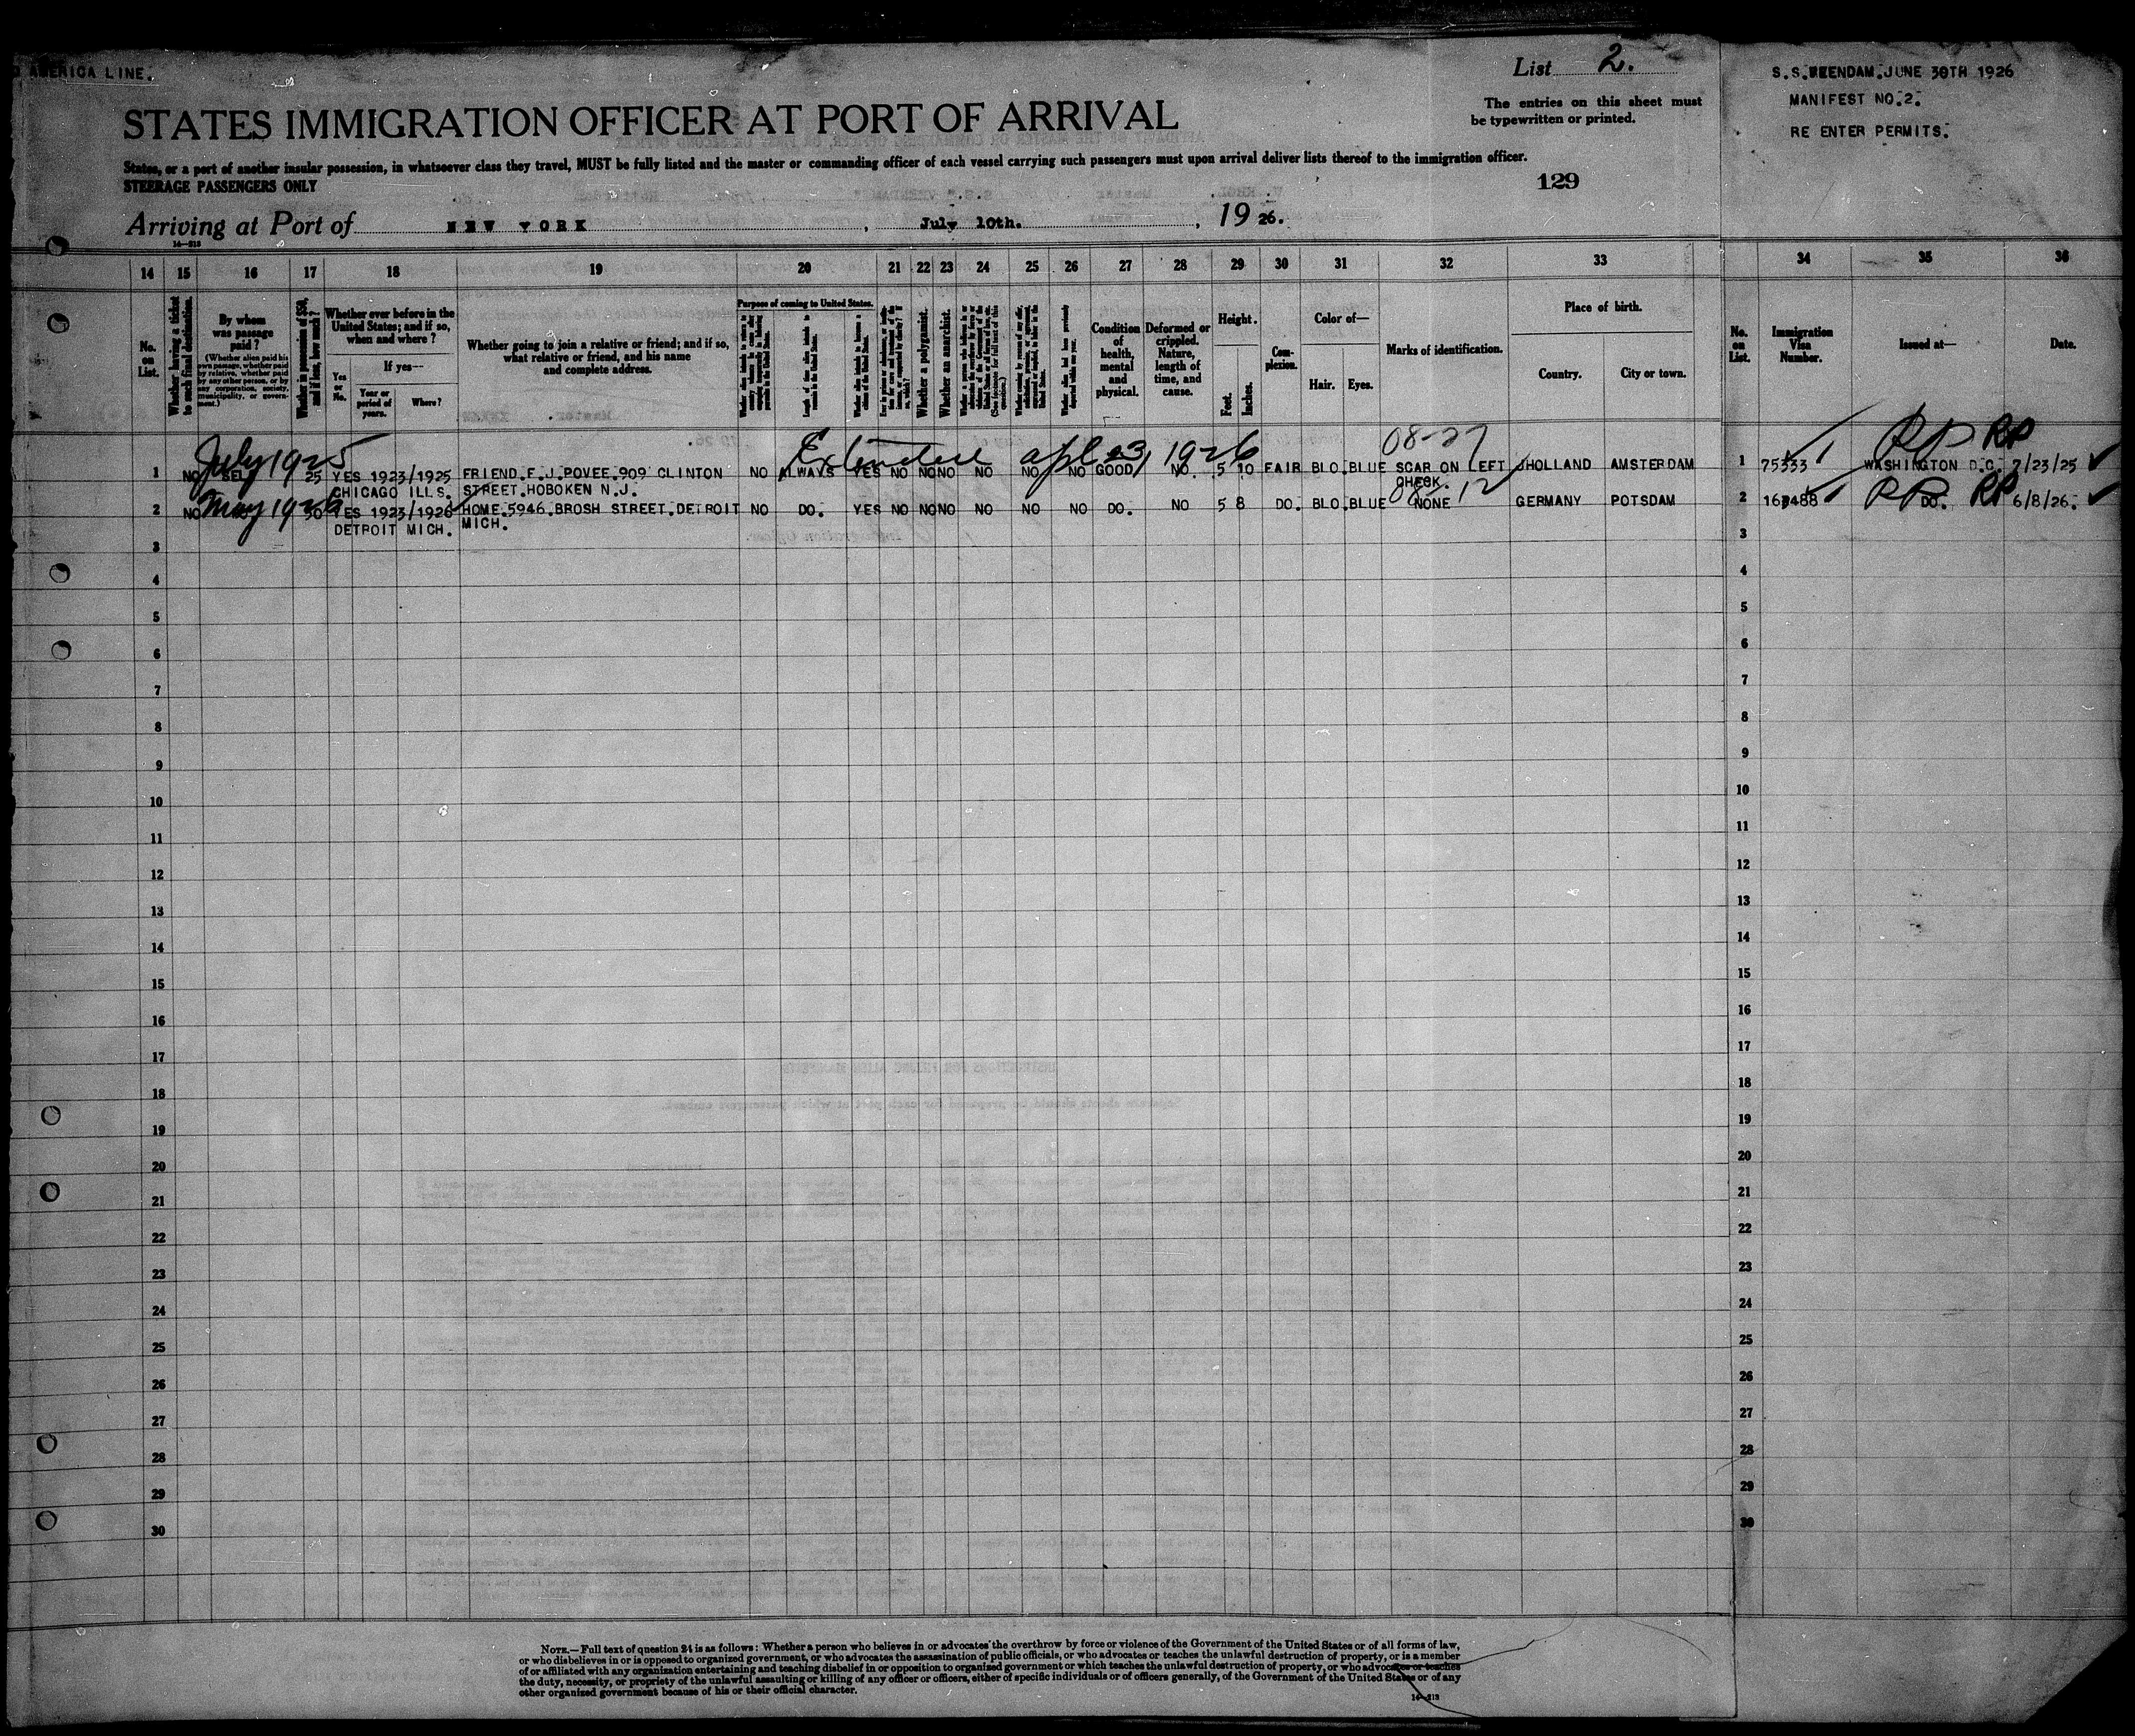 AMERICA LINE.
List 2.
S.S. VEENDAM. JUNE 30TH 1926
MANIFEST NO. 2.
RE ENTER PERMITS.
The entries on this sheet must
be typewritten or printed.
STATES IMMIGRATION OFFICER AT PORT OF ARRIVAL
States, or a port of another insular possession, in whatsoever class they travel, MUST be fully listed and the master or commanding officer of each vessel carrying such passengers must upon arrival deliver lists thereof to the immigration officer.
STEERAGE PASSENGERS ONLY
129
Arriving at Port of NEW YORK, July 10th., 1926.
14—213
14 15 16 17 18 19 20 21 22 23 24 25 26 27 28 29 30 31 32 33 34 35 36
No. on List.
Whether having a ticket to such final destination.
By whom was passage paid?
(Whether alien paid his own passage, whether paid by relative, whether paid by any other person, or by any corporation, society, municipality, or government.)
Whether in possession of $50, and if less, how much?
Whether ever before in the United States; and if so, when and where?
Yes or No.
If yes—
Year or period of years.
Where?
Whether going to join a relative or friend; and if so, what relative or friend, and his name and complete address.
Purpose of coming to United States.
Whether a polygamist.
Whether an anarchist.
Condition of health, mental and physical.
Deformed or crippled. Nature, length of time, and cause.
Height.
Feet. Inches.
Complexion.
Color of—
Hair. Eyes.
Marks of identification.
Place of birth.
Country. City or town.
No. on List.
Immigration Visa Number.
Issued at—
Date.
July 1925 Extended apl 23, 1926 08-27 RP RP
1 NO SELF 25 YES 1923/1925 FRIEND.F.J.POVEE.909 CLINTON NO ALWAYS YES NO NO NO NO NO NO GOOD NO. 5 10 FAIR BLO.BLUE SCAR ON LEFT HOLLAND AMSTERDAM 1 75333 WASHINGTON D.C. 7/23/25
CHICAGO ILLS. STREET.HOBOKEN N.J. CHECK.
May 1926 08-12
2 NO 50 YES 1923/1926 HOME.5946.BROSH STREET.DETROIT NO DO. YES NO NO NO NO NO NO DO. NO 5 8 DO. BLO.BLUE NONE GERMANY POTSDAM 2 DO. RP RP 6/8/26.
DETROIT MICH. MICH.
3 3
4 4
5 5
6 6
7 7
8 8
9 9
10 10
11 11
12 12
13 13
14 14
15 15
16 16
17 17
18 18
19 19
20 20
21 21
22 22
23 23
24 24
25 25
26 26
27 27
28 28
29 29
30 30
NOTE.—Full text of question 24 is as follows: Whether a person who believes in or advocates the overthrow by force or violence of the Government of the United States or of all forms of law,
or who disbelieves in or is opposed to organized government, or who advocates the assassination of public officials, or who advocates or teaches the unlawful destruction of property, or is a member
of or affiliated with any organization entertaining and teaching disbelief in or opposition to organized government or which teaches the unlawful destruction of property, or who advocates or teaches
the duty, necessity, or propriety of the unlawful assaulting or killing of any officer or officers, either of specific individuals or of officers generally, of the Government of the United States or of any
other organized government because of his or their official character.
14—213